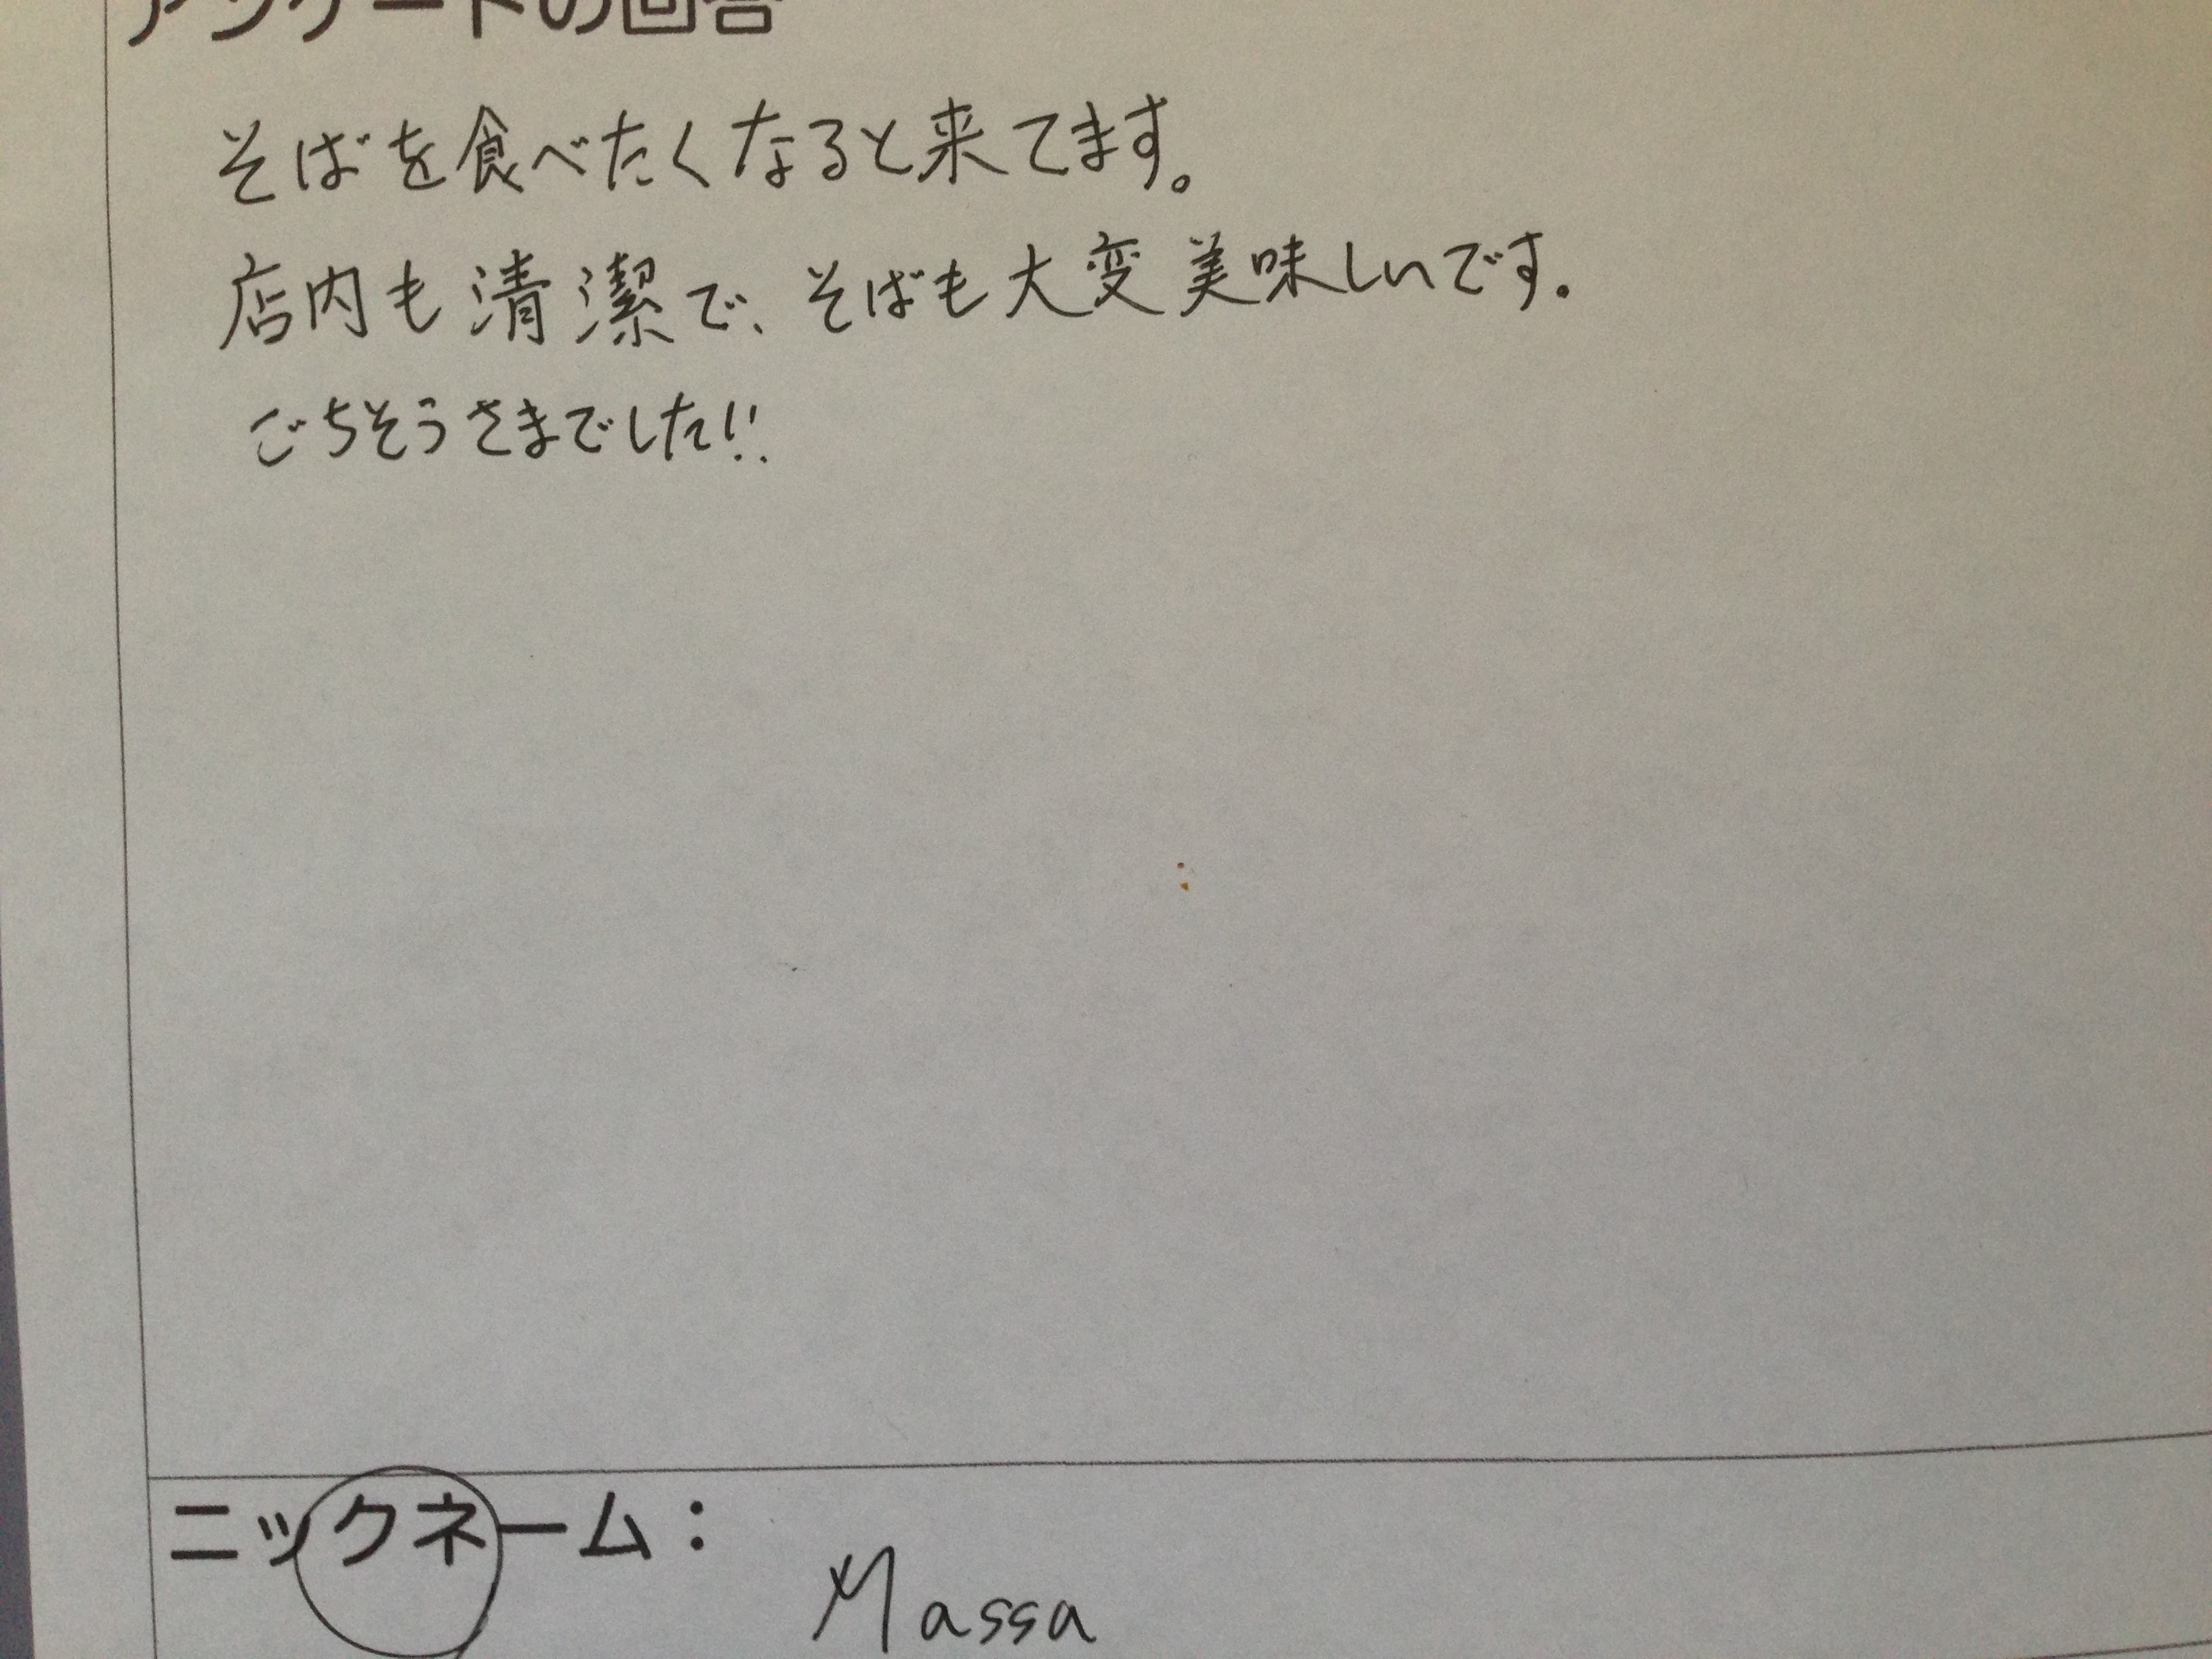 アンケートの回答
そばを食べたくなると来てます。
店内も清潔で、そばも大変美味しいです。
ごちそうさまでした!!
ニックネーム：
Massa